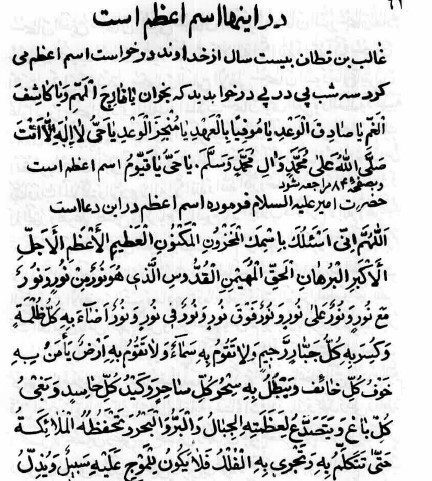 ۶۹
در اینها اسم اعظم است
غالب بن قطان بیست سال از خداوند درخواست اسم اعظم می
کرد سه شب پی در پی در خواب دید که بخوان یا فارِجَ الْهَمِّ وَیا کاشِفَ
الْغَمِّ یا صادِقَ الْوَعْدِ یا مُوفِیًا بِالْعَهْدِ یا مُنْجِزَ الْوَعْدِ یا حَیُّ لا اِلٰهَ اِلّا اَنْتَ
صَلَّی اللهُ عَلیٰ مُحَمَّدٍ وَالِ مُحَمَّدٍ وَسَلَّمَ ، یا حَیُّ یا قَیُّومُ اسم اعظم است
وبصفحه ۸۴ مراجعه شود
حضرت امیر علیه السلام فرموده اسم اعظم در این دعا است
اَللّٰهُمَّ اِنّی اَسْئَلُكَ بِاسْمِكَ الْمَخْزُونِ الْمَكْنُونِ الْعَظیمِ الْاَعْظَمِ الْاَجَلِّ
الْاَكْبَرِ الْبُرْهانِ الْحَقِّ الْمُهَیْمِنِ الْقُدُّوسِ الَّذی هُوَ نُورٌ مِنْ نُورٍ وَنُورٌ
مَعَ نُورٍ وَنُورٌ عَلیٰ نُورٍ وَنُورٌ فَوْقَ نُورٍ وَنُورٌ فی نُورٍ وَنُورٌ اَضآءَ بِهِ كُلُّ ظُلْمَةٍ
وَكُسِرَ بِهِ كُلُّ جَبّارٍ رَجیمٍ وَلا تَقُومُ بِهِ سَمآءٌ وَلا تَقُومُ بِهِ اَرْضٌ یَأْمَنُ بِهِ
خَوْفُ كُلِّ خائِفٍ وَیَبْطُلُ بِهِ سِحْرُ كُلِّ ساحِرٍ وَكَیْدُ كُلِّ حاسِدٍ وَبَغْیُ
كُلِّ باغٍ وَیَتَصَدَّعُ لِعَظَمَتِهِ الْجِبالُ وَالْبَرُّ وَالْبَحْرُ وَتَحْفَظُهُ الْمَلائِكَةُ
حَتّیٰ تَتَكَلَّمَ بِهِ وَتَجْری بِهِ الْفُلْكُ فَلا یَكُونُ لِلْمَوْجِ عَلَیْهِ سَبیلٌ وَیُذِلُّ